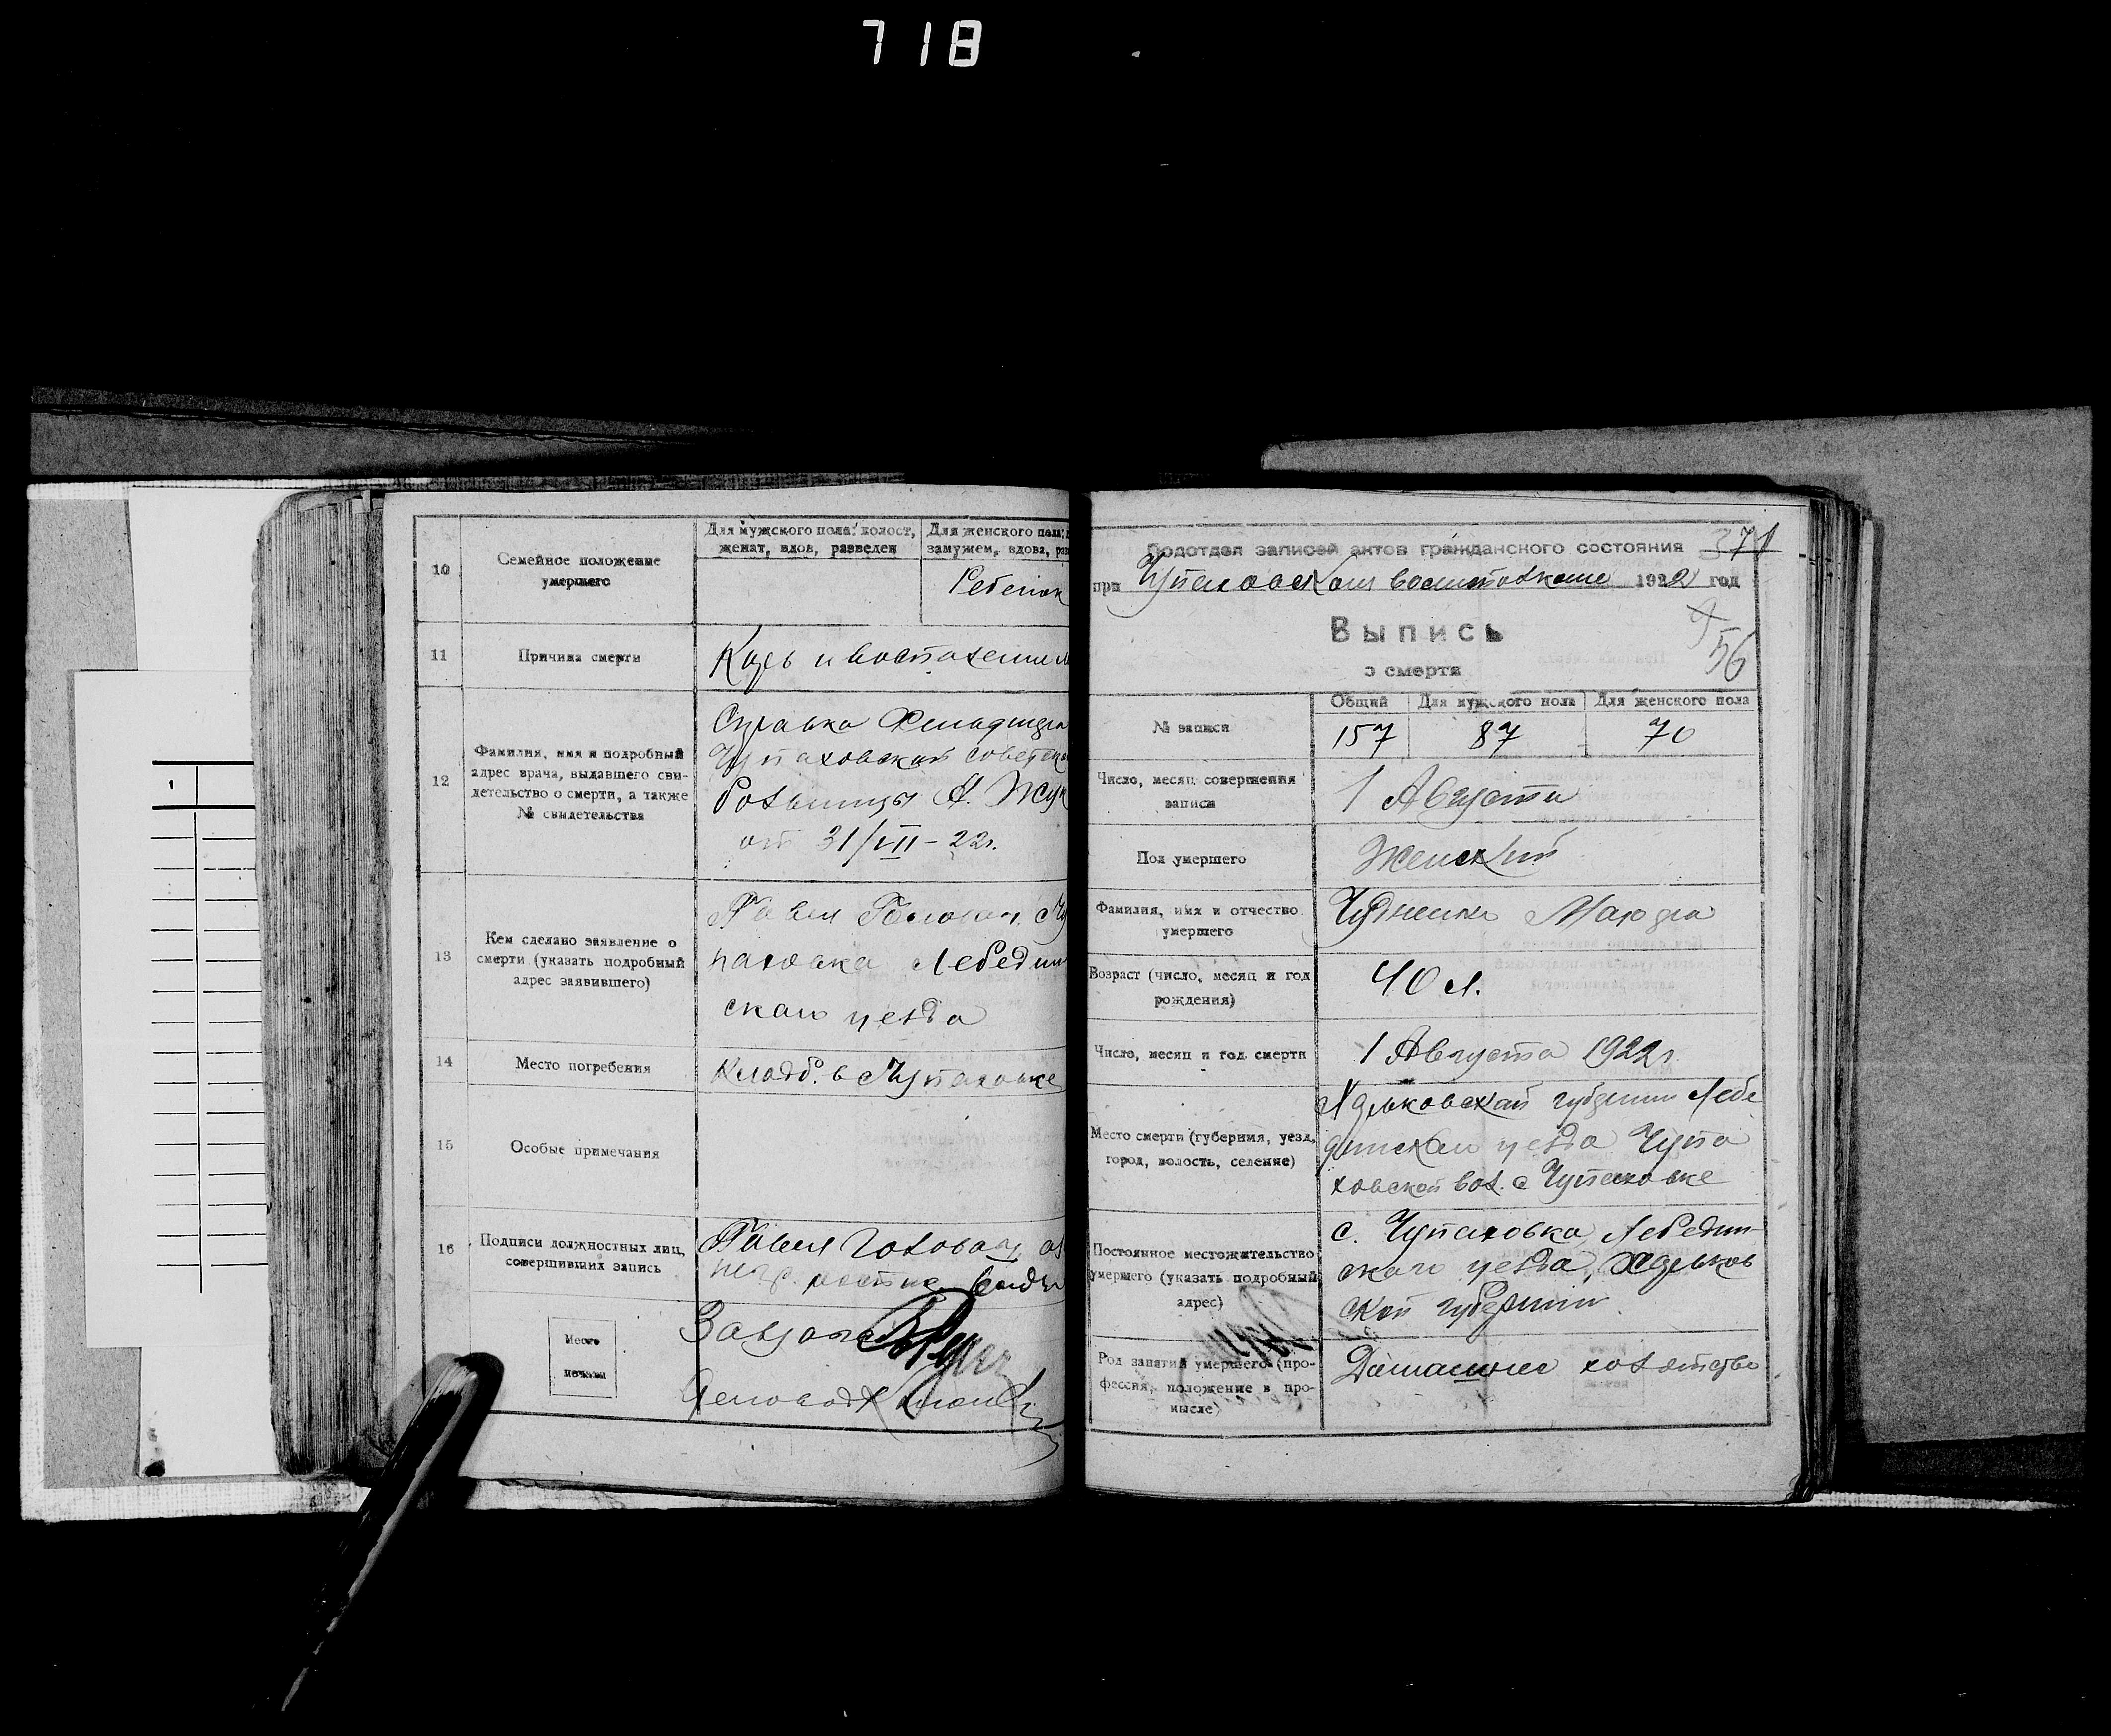 718
10
Семейное положение
умершего
Для мужского пола: холост,
женат, вдов, разведен
Для женского пола:
замужем, вдова, раз
Ребенок
11
Причина смерти
Корь и воспаление л
12
Фамилия, имя и подробный
адрес врача, выдавшего сви-
детельство о смерти, а также
№ свидетельства
Справка Фельдшера
Чупаховской советской
больницы А. Жук
от 31/VII-22г.
13
Кем сделано заявление о
смерти (указать подробный
адрес заявившего)
Павел Головач. Чу
паховка Лебедин
скаго уезда
14
Место погребения
Кладб. в Чупаховке
15
Особые примечания
16
Подписи должностных лиц,
совершивших запись
Павел Головач
Место
печати
Завзагс
Деловод
371
Подотдел записей актов гражданского состояния
при Чупаховском волисполкоме 1922 год
56
Выпись
о смерти
№ записи
Общий
Для мужского пола
Для женского пола
157
87
70
Число, месяц совершения
записи
1 Августа
Пол умершего
Женский
Фамилия, имя и отчество
умершего
Марфа
Возраст (число, месяц и год
рождения)
40 л.
Число, месяц и год смерти
1 Августа 1922г.
Место смерти (губерния, уезд,
город, волость, селение)
Харьковской губернии Лебе
динскаго уезда Чупа
ховской вол. с Чупаховке
Постоянное местожительство
умершего (указать подробный
адрес)
с. Чупаховка, Лебедин-
скаго уезда, Харьков
ской губернии
Род занятий умершего (про-
фессия, положение в про-
мысле)
Домашнее хозяйство